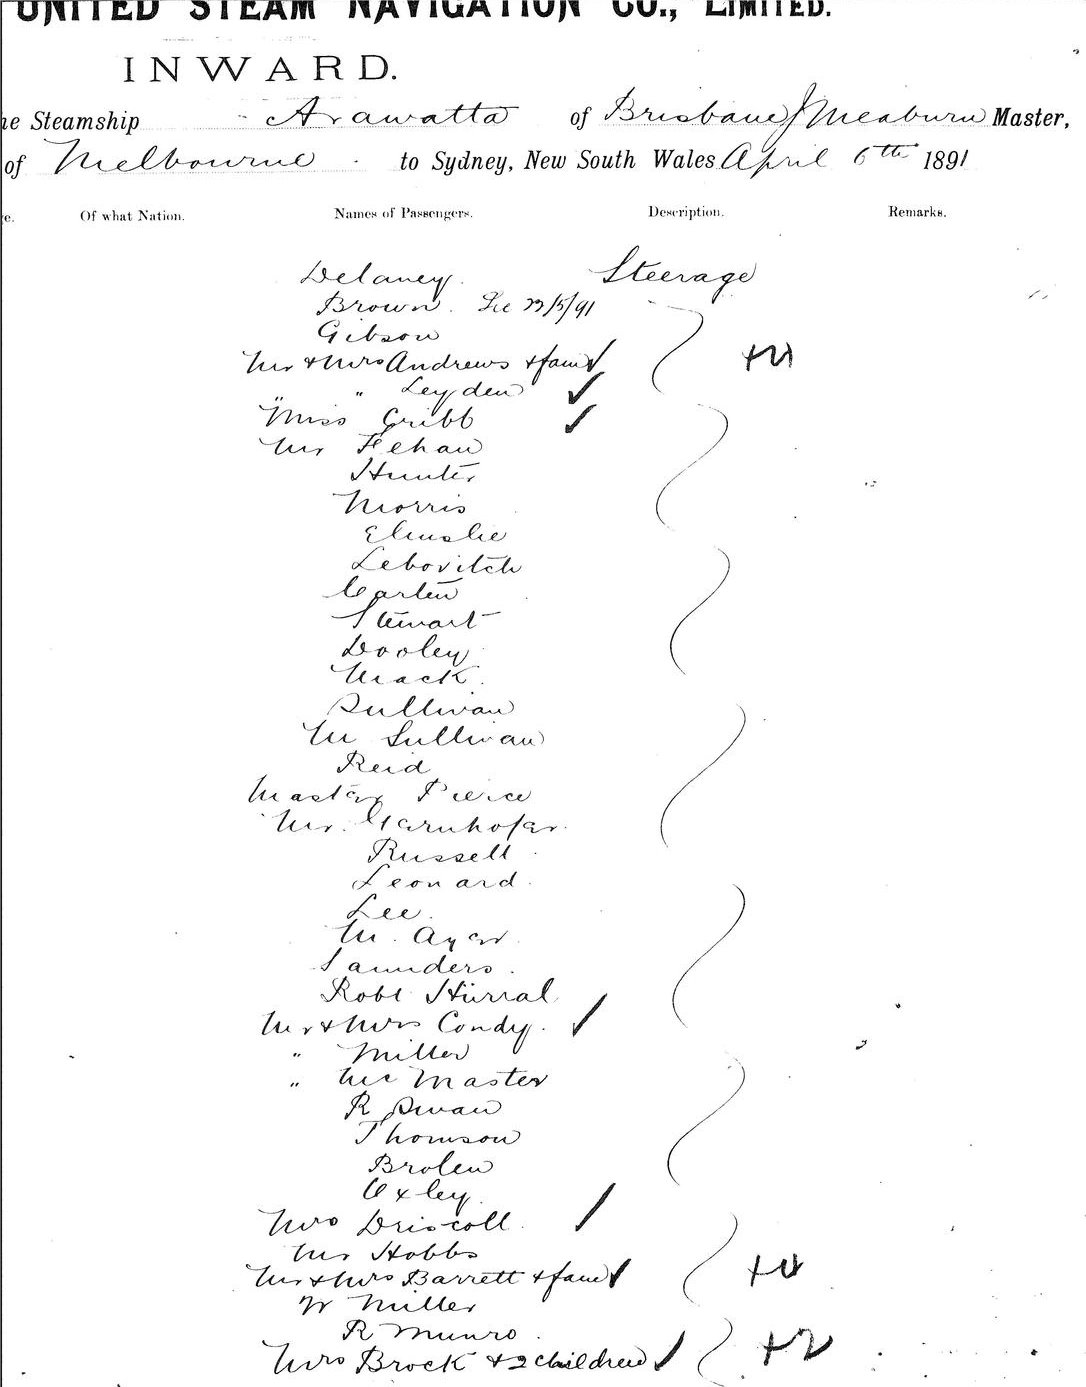 UNITED STEAM NAVIGATION CO., LIMITED.
INWARD.
he Steamship Arawatta of Brisbane J Meaburn Master,
of Melbourne to Sydney, New South Wales April 6th 1891
e. Of what Nation. Names of Passengers. Description. Remarks.
Delaney. Steerage
Brown. See 22/5/91
Gibson
Mr + Mrs Andrews + fam ✓ +4
" " Leyden ✓
Miss Gribb ✓
Mr Fehan
Hunter
Morris
Elmslie
Lebovitch
Carten
Stewart
Dooley
Mack.
Sullivan
M Sullivan
Reid
Master Pierce
Mr. Gernhofer.
Russell
Leonard.
Lee.
M. Ayer.
Saunders.
Robt Hurral
Mr + Mrs Condy. ✓
" Miller
" McMaster
R Swan
Thomson
Brolen
Oxley.
Mrs Driscoll.
Mr Hobbs
Mr + Mrs Barrett + fam ✓ +4
W Miller
R Munro.
Mrs Brock + 2 children ✓ +2